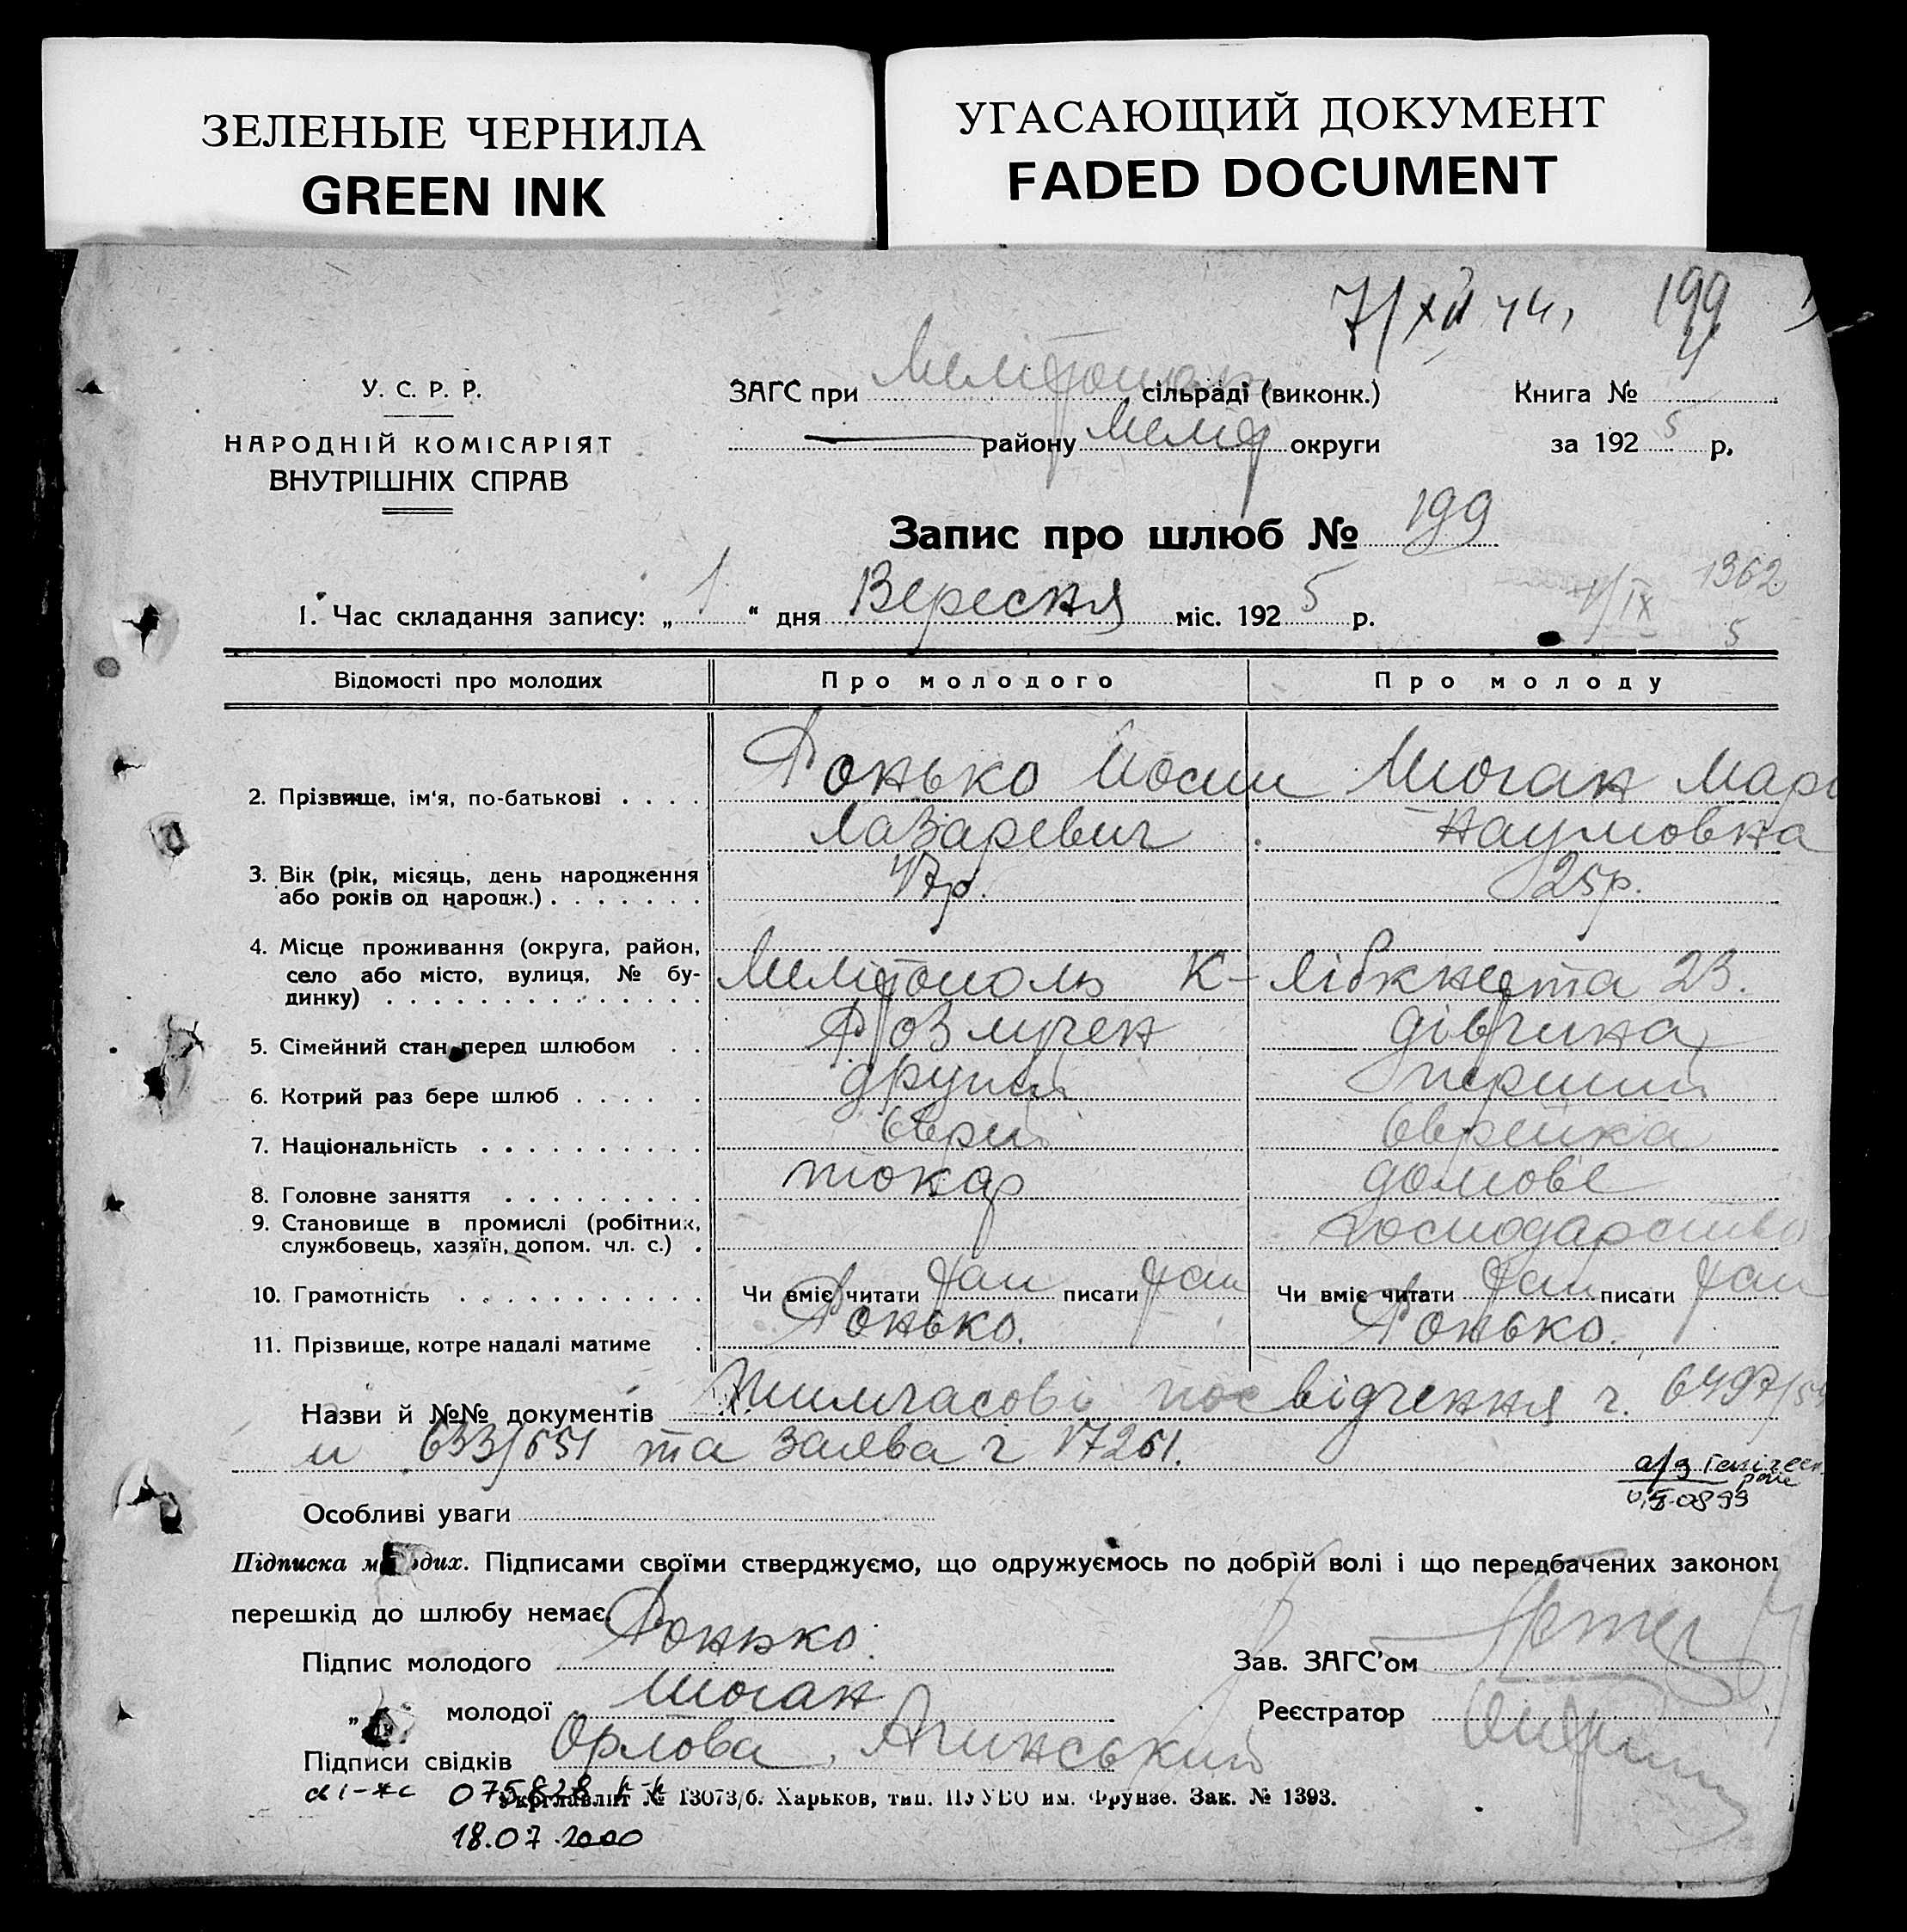 ЗЕЛЕНЫЕ ЧЕРНИЛА
GREEN INK
УГАСАЮЩИЙ ДОКУМЕНТ
FADED DOCUMENT
7/XII 44, 199
У. С. Р. Р.
НАРОДНІЙ КОМІСАРІЯТ
ВНУТРІШНІХ СПРАВ
ЗАГС при Мелітопол сільраді (виконк.)
району Меліт округи
Книга №
за 1925 р.
Запис про шлюб № 199
1362
1/IX
5
1. Час складання запису: „ 1 “ дня Вересня міс. 1925 р.
Відомості про молодих Про молодого Про молоду
2. Прізвище, ім'я, по-батькові . . . . Ронько Йосип Шоган Мар
Лазаревич Наумовна
3. Вік (рік, місяць, день народження
або років од народж.) . . . . . . . 47р. 25р.
4. Місце проживання (округа, район,
село або місто, вулиця, № бу-
динку) . . . . . . . . . . . . . . Мелітополь К-Лібкнехта 23.
5. Сімейний стан перед шлюбом . . Розлучен дівчина
6. Котрий раз бере шлюб . . . . . другий перший
7. Національність . . . . . . . . . . Єврей Єврейка
8. Головне заняття . . . . . . . . . токар домове
9. Становище в промислі (робітник,
службовець, хазяїн, допом. чл. с.) . господарство
10. Грамотність . . . . . . . . . . . Чи вміє читати так писати так Чи вміє читати так писати так
11. Прізвище, котре надалі матиме . Ронько. Ронько.
Назви й №№ документів Тимчасові посвідчення ч. 6497/
и 633/651 та заява ч 17261.
а/з Генічеськ
Особливі уваги
Підписка молодих. Підписами своїми стверджуємо, що одружуємось по добрій волі і що передбачених законом
перешкід до шлюбу немає.
Підпис молодого Ронько.
Зав. ЗАГС'ом
„ молодої Шоган
Реєстратор
Підписи свідків Орлова, Агинський
075828
Укрглавліт № 13073/б. Харьков, тип. ПУУВО им. Фрунзе. Зак. № 1393.
18.07.2000